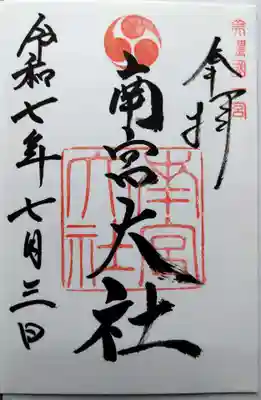 奉拝
南宮大社
南宮大社
令和七年七月三日